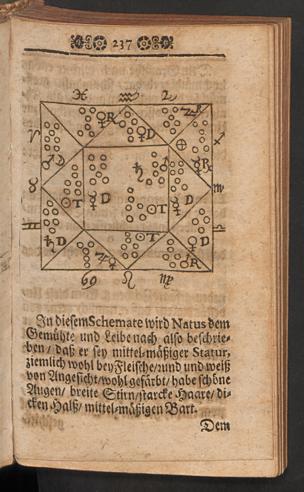 237
♓ ♒ ♑
R D R
♈ ♐
D R
♉ D ♏
T T D
♊ T ♎
D D
R
♋ ♌ ♍
In diesem Schemate wird Natus dem
Gemühte und Leibe nach also beschrie-
ben / daß er sey mittel-mäßiger Statur,
ziemlich wohl bey Fleische / rund und weiß
von Angesicht / wohl gefärbt / habe schöne
Augen / breite Stirn / starcke Haare / di-
cken Halß / mittel-mäßigen Bart.
Dem